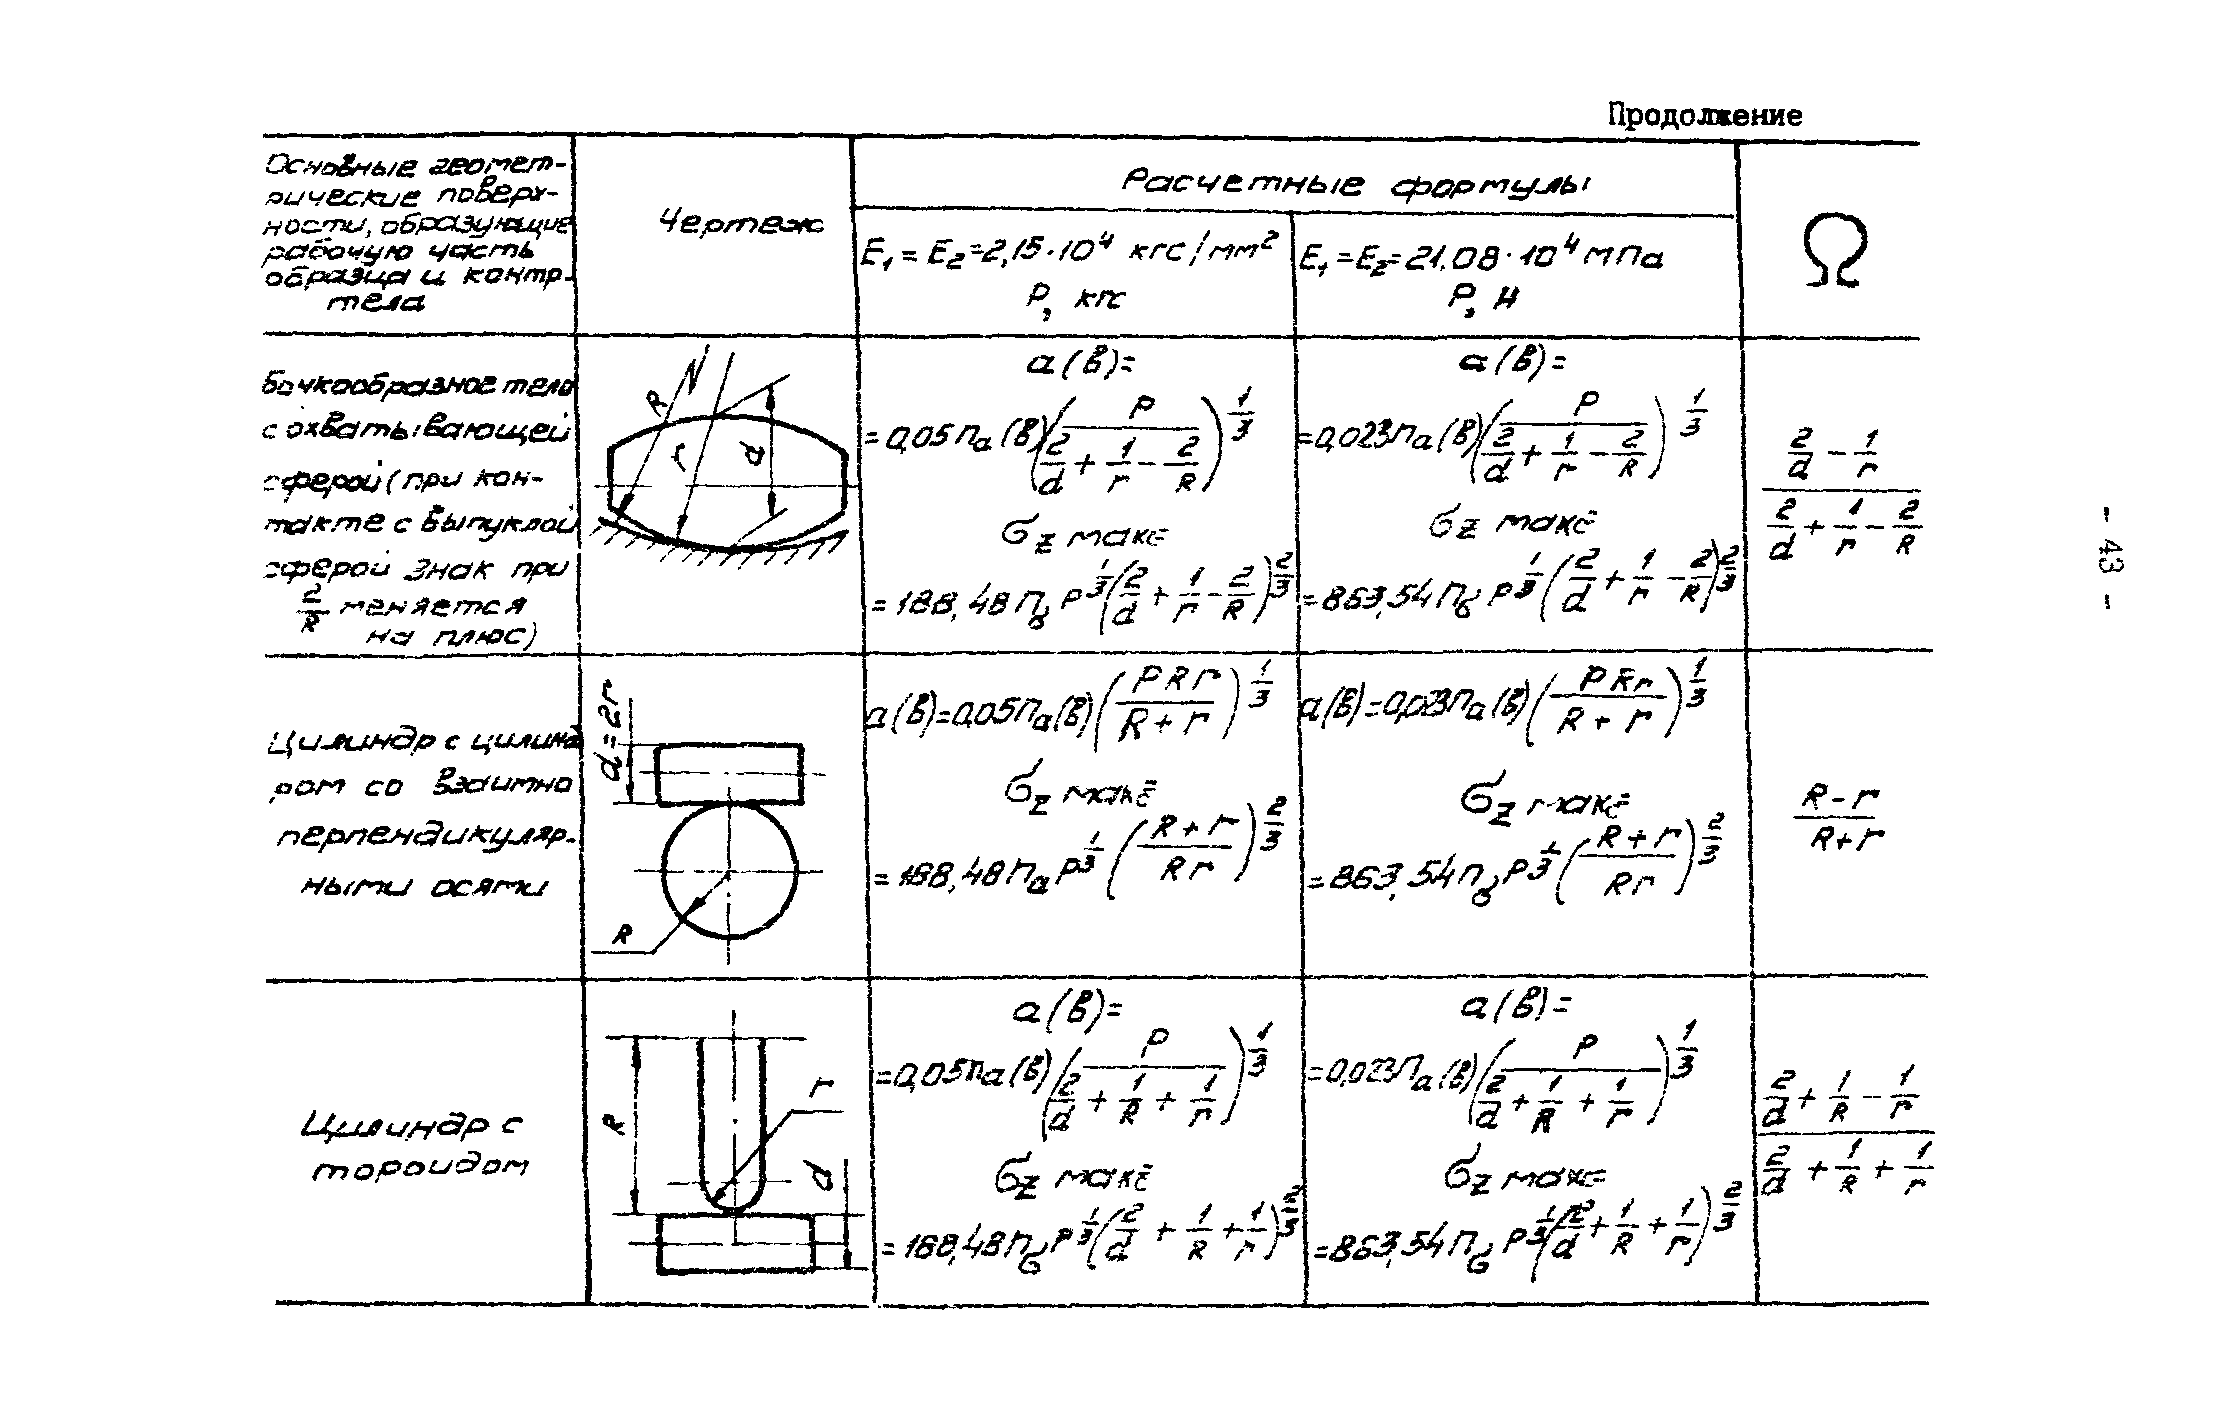 Продолжение
Основные геомет-
рические поверх-
ности, образующие
рабочую часть
образца и контр-
тела
Чертеж
Расчетные формулы
E₁ = E₂ = 2,15·10⁴ кгс/мм²
P, кгс
E₁ = E₂ = 21.08·10⁴ мПа
P, Н
Ω
бочкообразное тело
с охватывающей
сферой (при кон-
такте с выпуклой
сферой знак при
2/R меняется
на плюс)
R N r d
a(в)=
=0,05 na(в)(P/(2/d + 1/r − 2/R))^1/3
σz макс =
= 188,48 nσ P^1/3 (2/d + 1/r − 2/R)^2/3
a(в)=
=0,023 na(в)(P/(2/d + 1/r − 2/R))^1/3
σz макс =
= 863,54 nσ P^1/3 (2/d + 1/r − 2/R)^2/3
(2/d − 1/r)/(2/d + 1/r − 2/R)
Цилиндр с цилинд
ром со взаимно
перпендикуляр-
ными осями
d=2r
R
a(в)=0,05 na(в)(PRr/(R+r))^1/3
σz макс =
= 188,48 na P^1/3 ((R+r)/Rr)^2/3
a(в)=0,023 na(в)(PRr/(R+r))^1/3
σz макс =
= 863,54 nσ P^1/3 ((R+r)/Rr)^2/3
(R−r)/(R+r)
Цилиндр с
тороидом
R r d
a(в)=
=0,05 na(в)(P/(2/d + 1/R + 1/r))^1/3
σz макс =
= 188,48 nσ P^1/3 (2/d + 1/R + 1/r)^2/3
a(в)=
=0,023 na(в)(P/(2/d + 1/R + 1/r))^1/3
σz макс =
= 863,54 nσ P^1/3 (2/d + 1/R + 1/r)^2/3
(2/d + 1/R − 1/r)/(2/d + 1/R + 1/r)
- 43 -